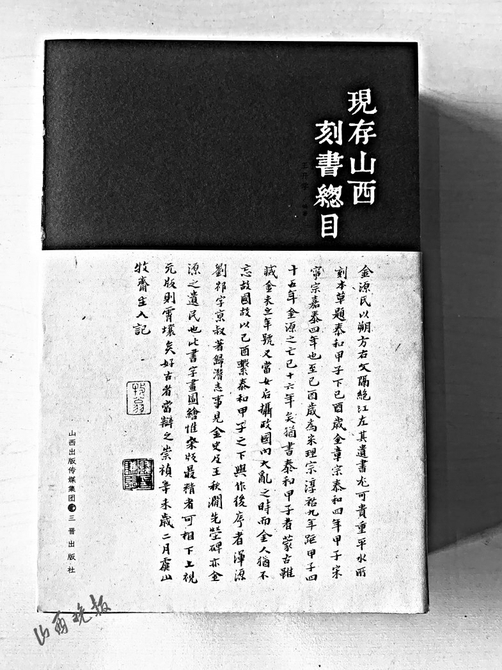 現存山西
刻書總目
金源氏以朔方右文隔絕江左其遺書尤可貴重平水所
刻本草題泰和甲子下己酉歲金章宗泰和四年甲子宋
寧宗嘉泰四年也至己酉歲為宋理宗淳祐九年距甲子四
十五年金源之亡已十六年矣猶書泰和甲子者蒙古雖
滅金未立年號又當女后攝政國內大亂之時而金人猶不
忘故國故以己酉繫泰和甲子之下與作後序者渾源
劉祁字京叔著歸潛志事見金史及王秋澗先塋碑亦金
源之遺民也此書字畫圖繪惟宋版最精者可相下上視
元版則霄壤矣好古者當辯之崇禎辛未歲二月虞山
牧齋主人記
牧翁
山西出版传媒集团 三晋出版社
山西晚报